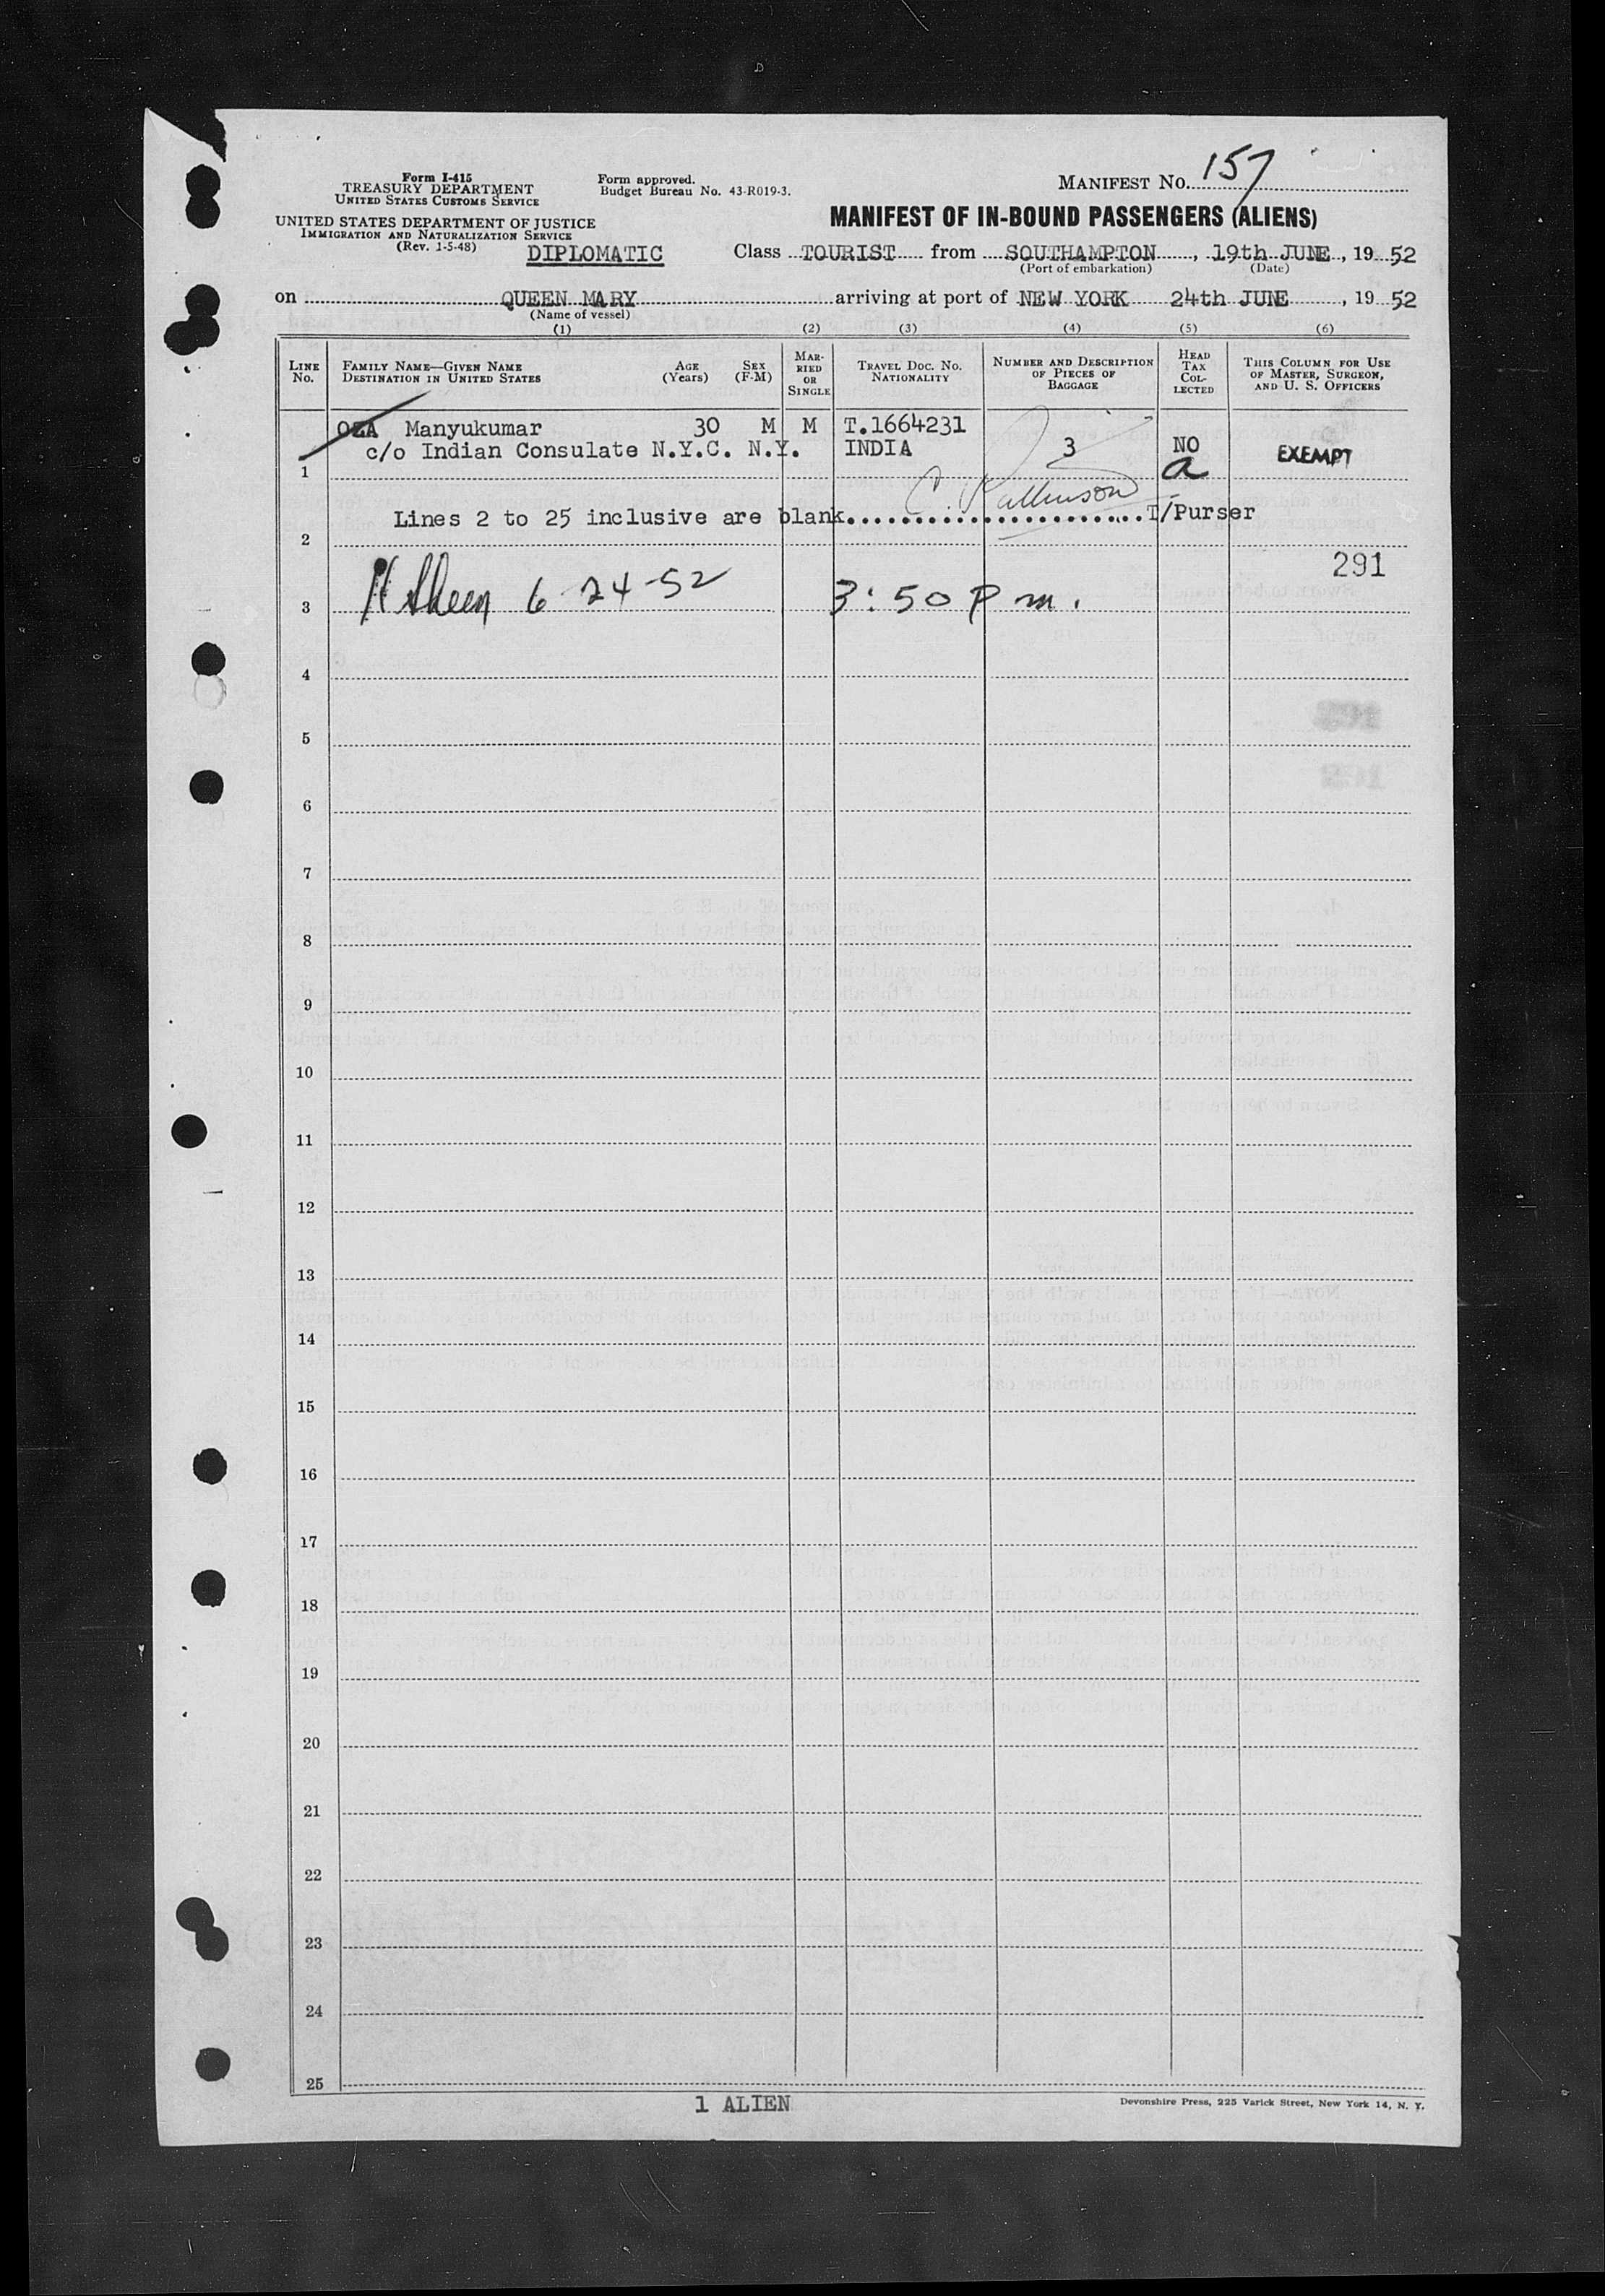 MANIFEST NO. 157
Form I-415
TREASURY DEPARTMENT
UNITED STATES CUSTOMS SERVICE
Form approved.
Budget Bureau No. 43-R019-3.
UNITED STATES DEPARTMENT OF JUSTICE
IMMIGRATION AND NATURALIZATION SERVICE
(Rev. 1-5-48)
MANIFEST OF IN-BOUND PASSENGERS (ALIENS)
DIPLOMATIC Class TOURIST from SOUTHAMPTON, 19th JUNE, 19 52
(Port of embarkation) (Date)
on QUEEN MARY arriving at port of NEW YORK 24th JUNE, 19 52
(Name of vessel)
(1) (2) (3) (4) (5) (6)
LINE No.
FAMILY NAME—GIVEN NAME
DESTINATION IN UNITED STATES
AGE (Years)
SEX (F-M)
MARRIED OR SINGLE
TRAVEL DOC. NO. NATIONALITY
NUMBER AND DESCRIPTION OF PIECES OF BAGGAGE
HEAD TAX COLLECTED
THIS COLUMN FOR USE OF MASTER, SURGEON, AND U. S. OFFICERS
OZA Manyukumar 30 M M T.1664231
c/o Indian Consulate N.Y.C. N.Y. INDIA 3 NO EXEMPT
1 a
Lines 2 to 25 inclusive are blank. T/Purser
2
291
3 6-24-52 3:50 P m.
4
5
6
7
8
9
10
11
12
13
14
15
16
17
18
19
20
21
22
23
24
25
1 ALIEN
Devonshire Press, 225 Varick Street, New York 14, N. Y.